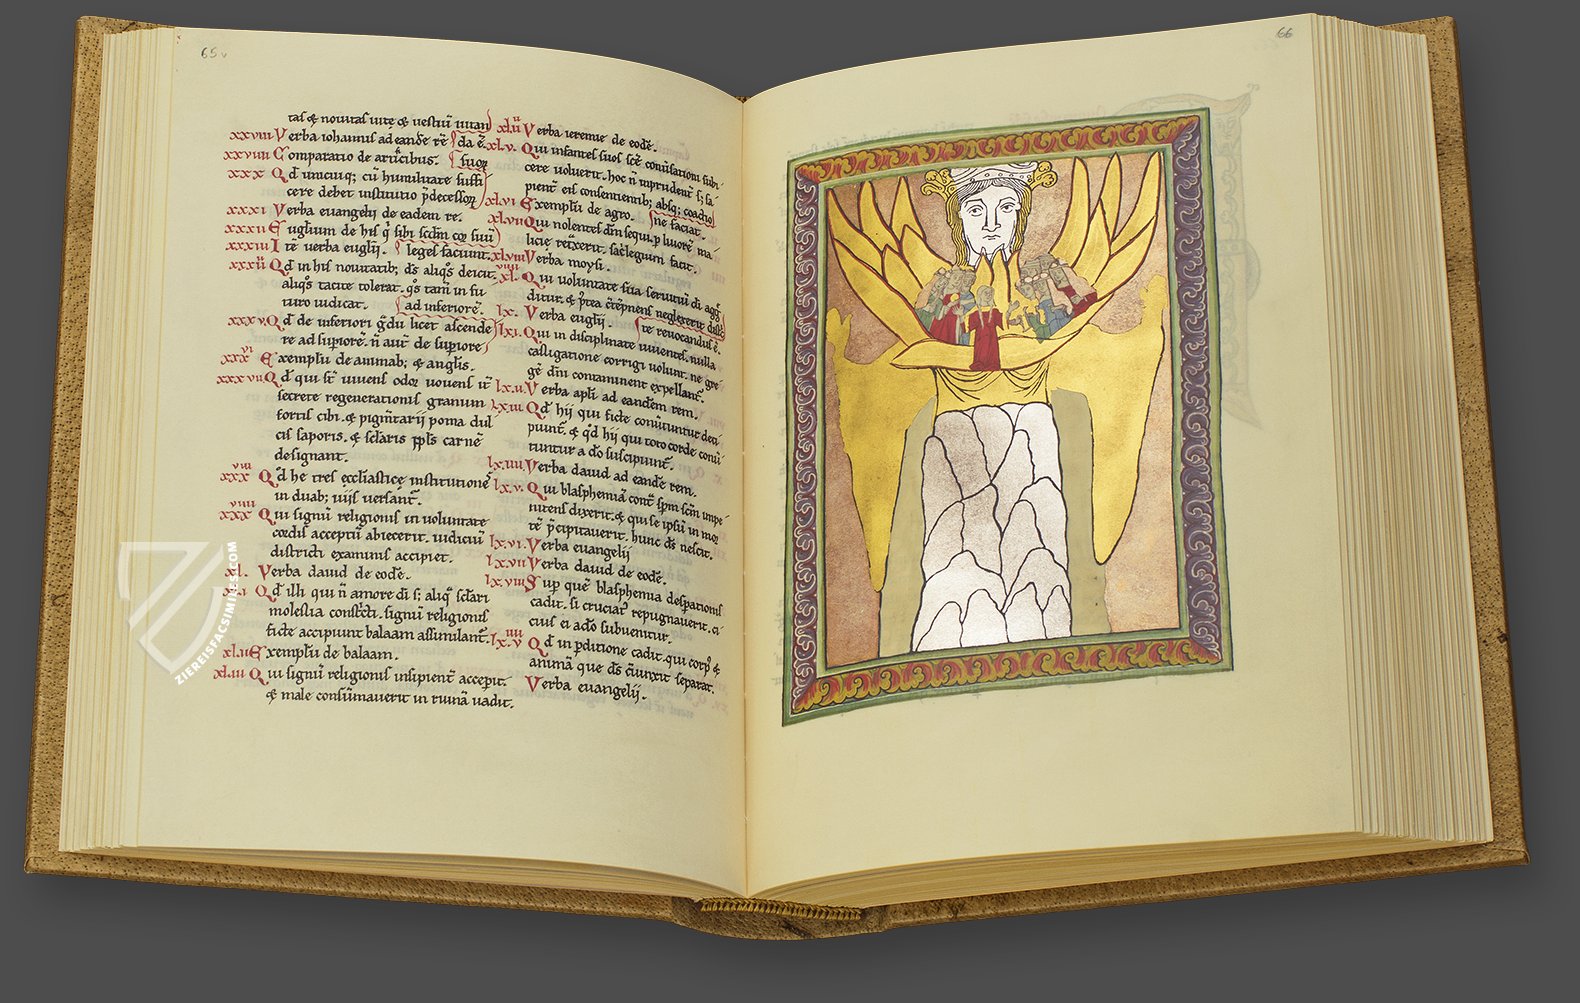 65v
tas & nouitas uite & uestiũ mitan
xxviii Verba iohannis ad eandẽ rẽ da ẽ.
xxviiii Comparatio de artificibus. suor
xxx Qd unicuiq; cũ humilitate suffi
cere debet institutio p̄decessor
xxxi Verba euangelij de eadem re.
xxxii Euglium de his q̄ sibi scdm cor suũ
xxxiii Itẽ uerba euglii. leges faciunt.
Qd in his nouitatib; ds aliqos deicit
aliqos tacite tolerat. qos tam̃ in fu
turo iudicat. ad inferiorẽ.
xxxv. Qd de inferiori gdu licet ascende
re ad supiore. ñ aut de supiore
Exemplũ de animab; & anglis.
xxxvii Qd qui st̃ uiuens odor uouens it̃
secrete regenerationis granum
fortis cibi. & pigm̃tarij poma dul
cis saporis. & sclaris ppls carnẽ
designant.
Qd he tres ecclastice institutione
in duab; uiis uersant̃.
Qui signũ religionis in uoluntate
cordis acceptũ abiecerit. iudiciũ
districti examinis accipiet.
xl. Verba dauid de eodẽ.
Qd illi qui ñ amore di s; aliq̃ sclari
molestia constricti. signũ religionis
ficte accipiunt balaam assimilant̃.
xlii Exemplũ de balaam.
xliii Qui signũ religionis insipient̃ acceperit
& male consũmauerit in ruinã uadit.
Verba ieremie de eodẽ.
xl.v. Qui infantes suos scẽ conũsationi subi
cere uoluerit. hoc ñ inprudent̃ s; sa
pient̃ eis consentientib; absq; coactio
xlvi Exemplũ de agro. ne faciat.
xlvii Qui nolentes dñm sequi p liuorẽ ma
licie ret̃xerit. sac̃legium facit.
xlviii Verba moysi.
Qui uoluntate sua seruitui di agg̃
ditur. & p̃tea
lx. Verba euglij. te reuocandus ẽ.
lxi. Qui in disciplinate uiuentes. nulla
castigatione corrigi uolunt. ne gre
gẽ dñi contaminent expellant̃.
lx.ii. Verba apli ad eandem rem.
lxiii Qd hij qui ficte conũtuntur deci
piunt̃. & qd hij qui toto corde conũ
tuntur a do suscipiunt̃.
lx.iiii. Verba dauid ad eandẽ rem.
lx.v. Qui blasphemiã cont̃ spm scm inpe
nitens dixerit. & qui se ipsũ in mor
tẽ p̃cipitauerit. hunc ds nescit.
lx.vi. Verba euangelij
lx.vii Verba dauid de eodẽ.
lx.viii Sup quẽ blasphemia despationis
cadit. si cruciat̃ repugnauerit. ci
cius ei ado subuenitur.
Qd in pditione cadit. qui corp̃ &
animã que ds cũiunxit separat.
Verba euangelij.
66
ZIEREISFACSIMILES.COM